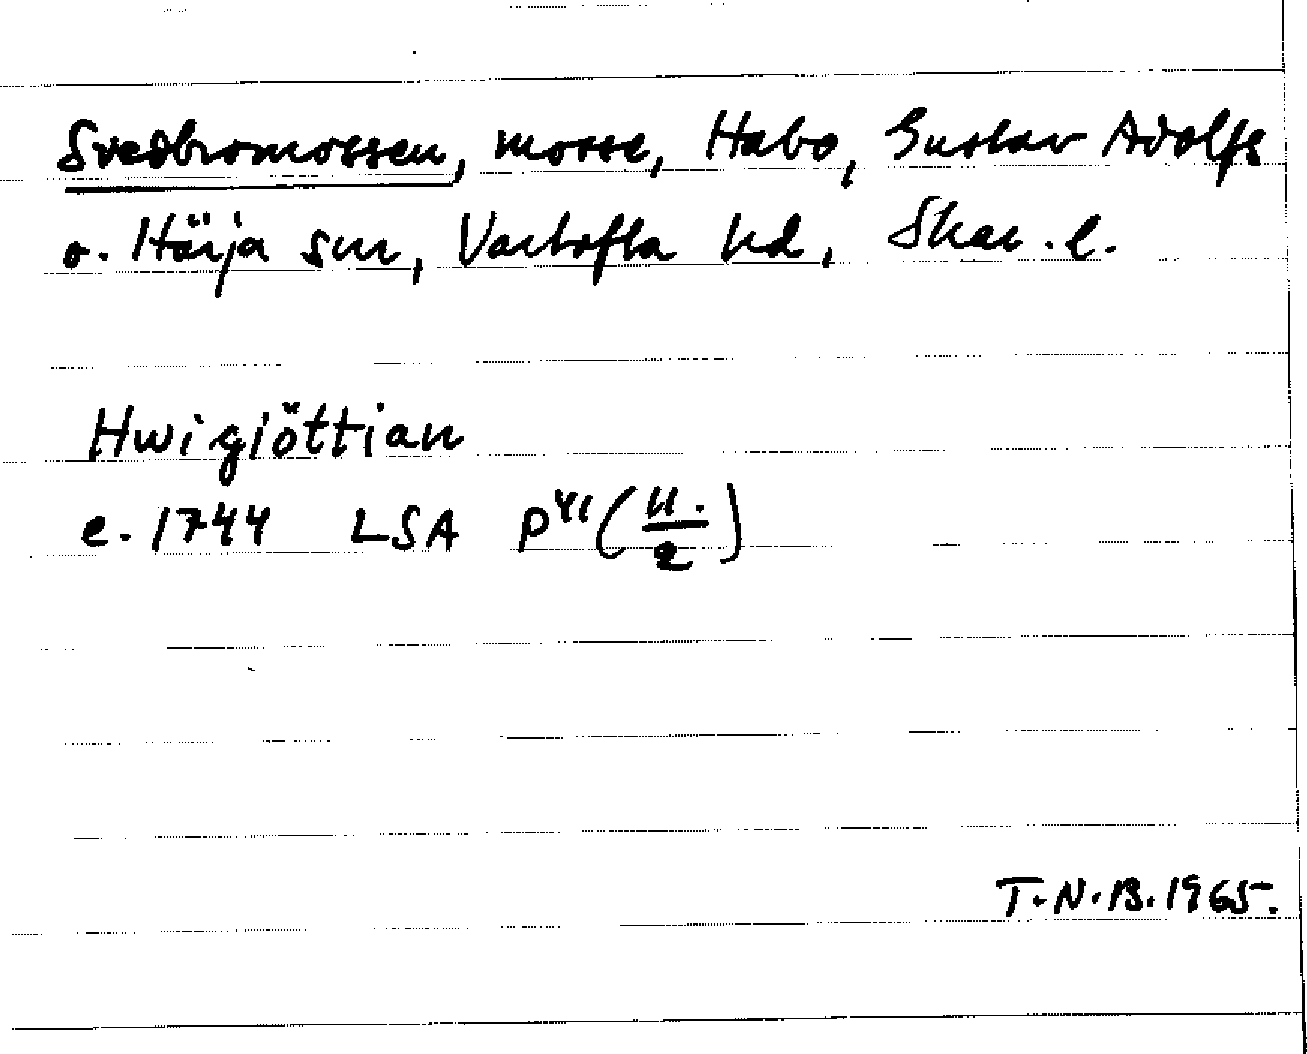 Svedbromossen, mosse, Habo, Gustav Adolfs
o. Härja snr, Vartofta hd, Skar. l.
Hwigiöttian
e. 1744 LSA P41 (11./2)
T.N.B. 1965.